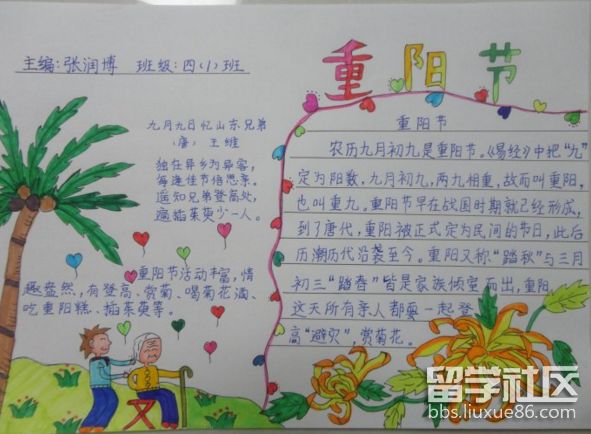 主编:张润博 班级:四(1)班
重阳节
九月九日忆山东兄弟
(唐) 王维
独在异乡为异客,
每逢佳节倍思亲。
遥知兄弟登高处,
遍插茱萸少一人。
重阳节活动丰富,情
趣盎然,有登高、赏菊、喝菊花酒、
吃重阳糕、插茱萸等。
重阳节
农历九月初九是重阳节。《易经》中把“九”
定为阳数,九月初九,两九相重,故而叫重阳,
也叫重九。重阳节早在战国时期就已经形成,
到了唐代,重阳被正式定为民间的节日,此后
历潮历代沿袭至今。重阳又称“踏秋”与三月
初三“踏春”皆是家族倾室而出,重阳
这天所有亲人都要一起登
高“避灾”,赏菊花。
留学社区
bbs.liuxue86.com